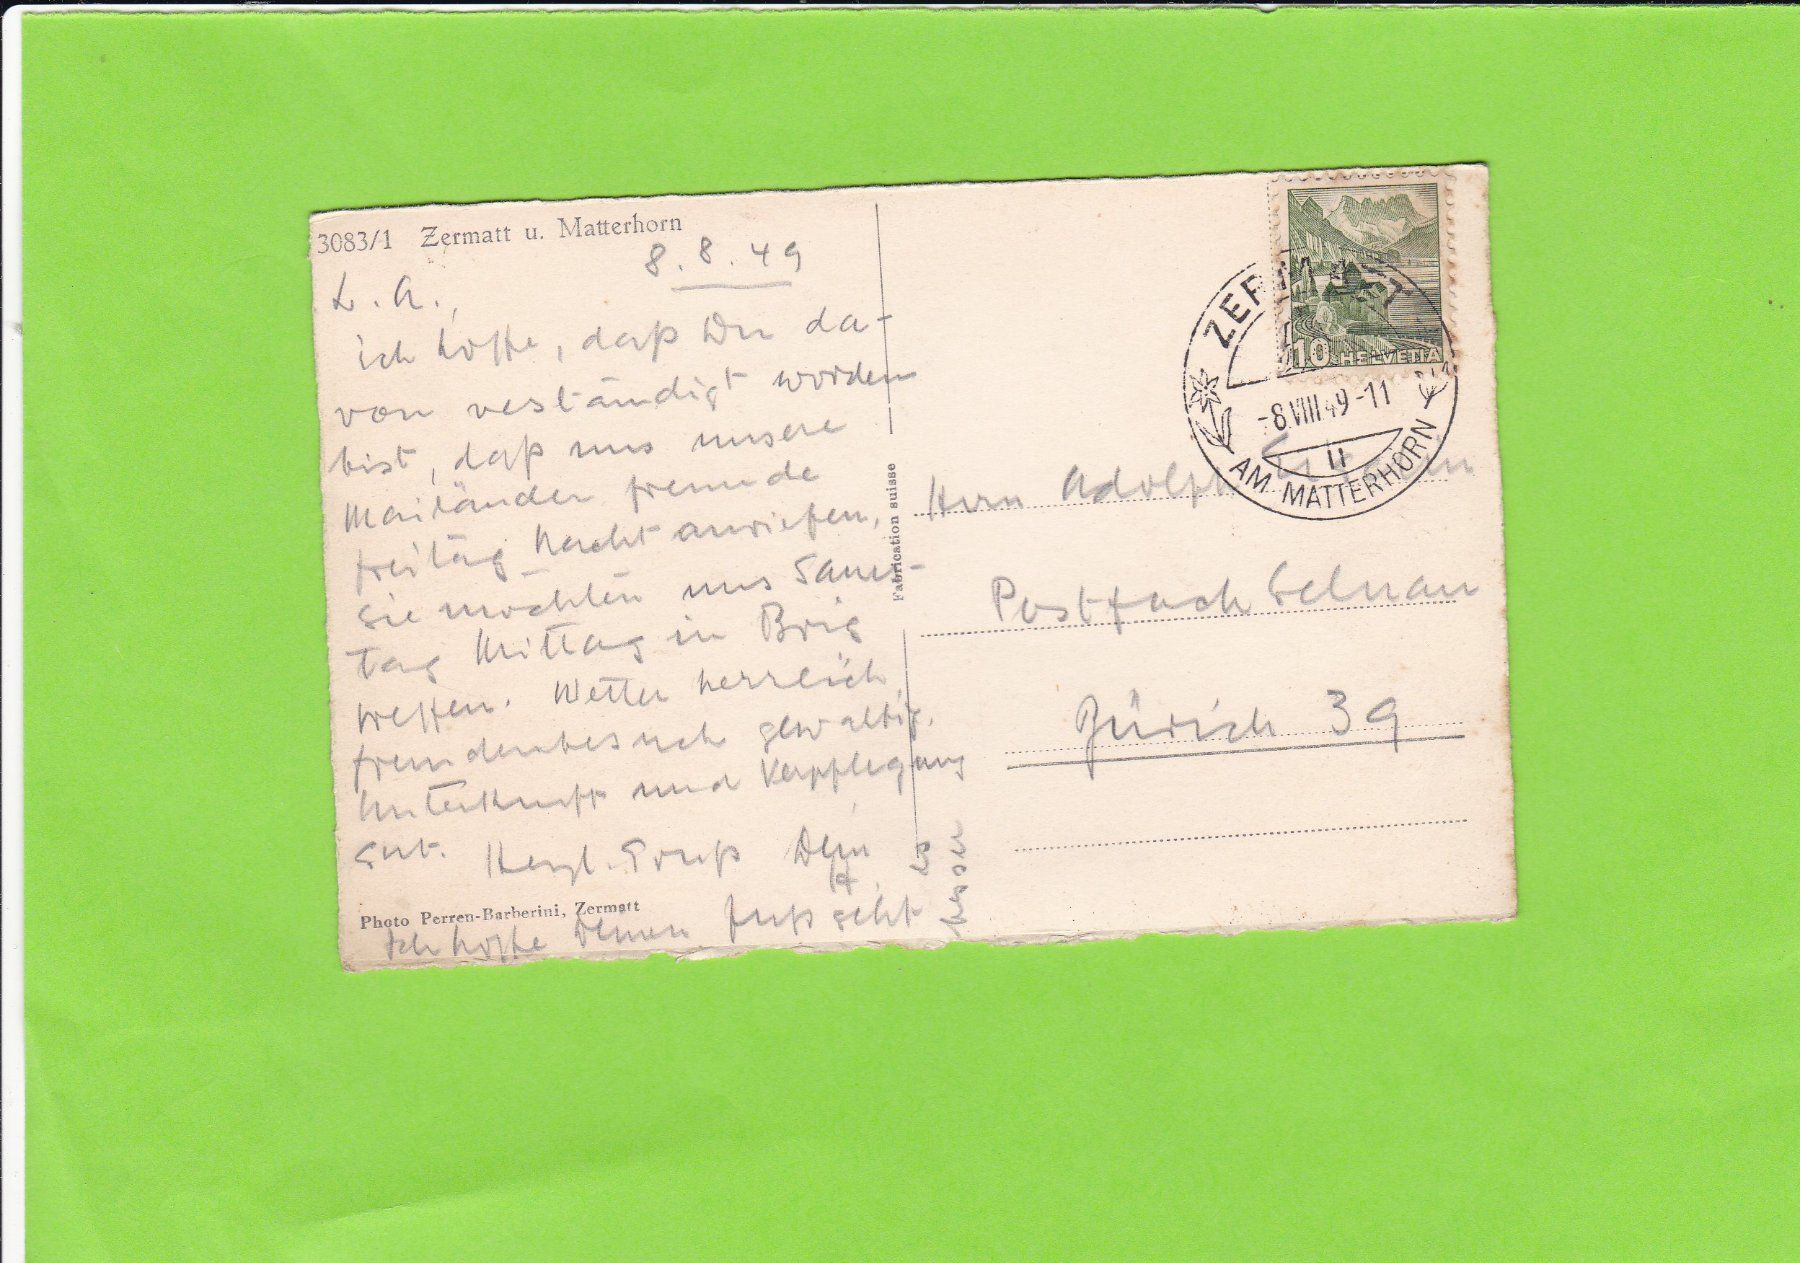 3083/1 Zermatt u. Matterhorn
8.8.49
L. A.,
ich hoffe, daß Du da-
von verständigt worden
bist, daß uns unsere
Mailänder Freunde
Freitag Nacht anriefen,
sie möchten uns Sams-
tag Mittag in Brig
treffen. Wetter herrlich,
Fremdenbesuch gewaltig.
Unterkunft und Verpflegung
gut. Herzl. Gruß Dein
A.
Photo Perren-Barberini, Zermatt
Ich hoffe Deinem Fuß geht
es
besser
Fabrication suisse
ZERMATT
-8.VIII.49-11
AM MATTERHORN
10 HELVETIA
Herrn Adolph
Postfach Selnau
Zürich 39